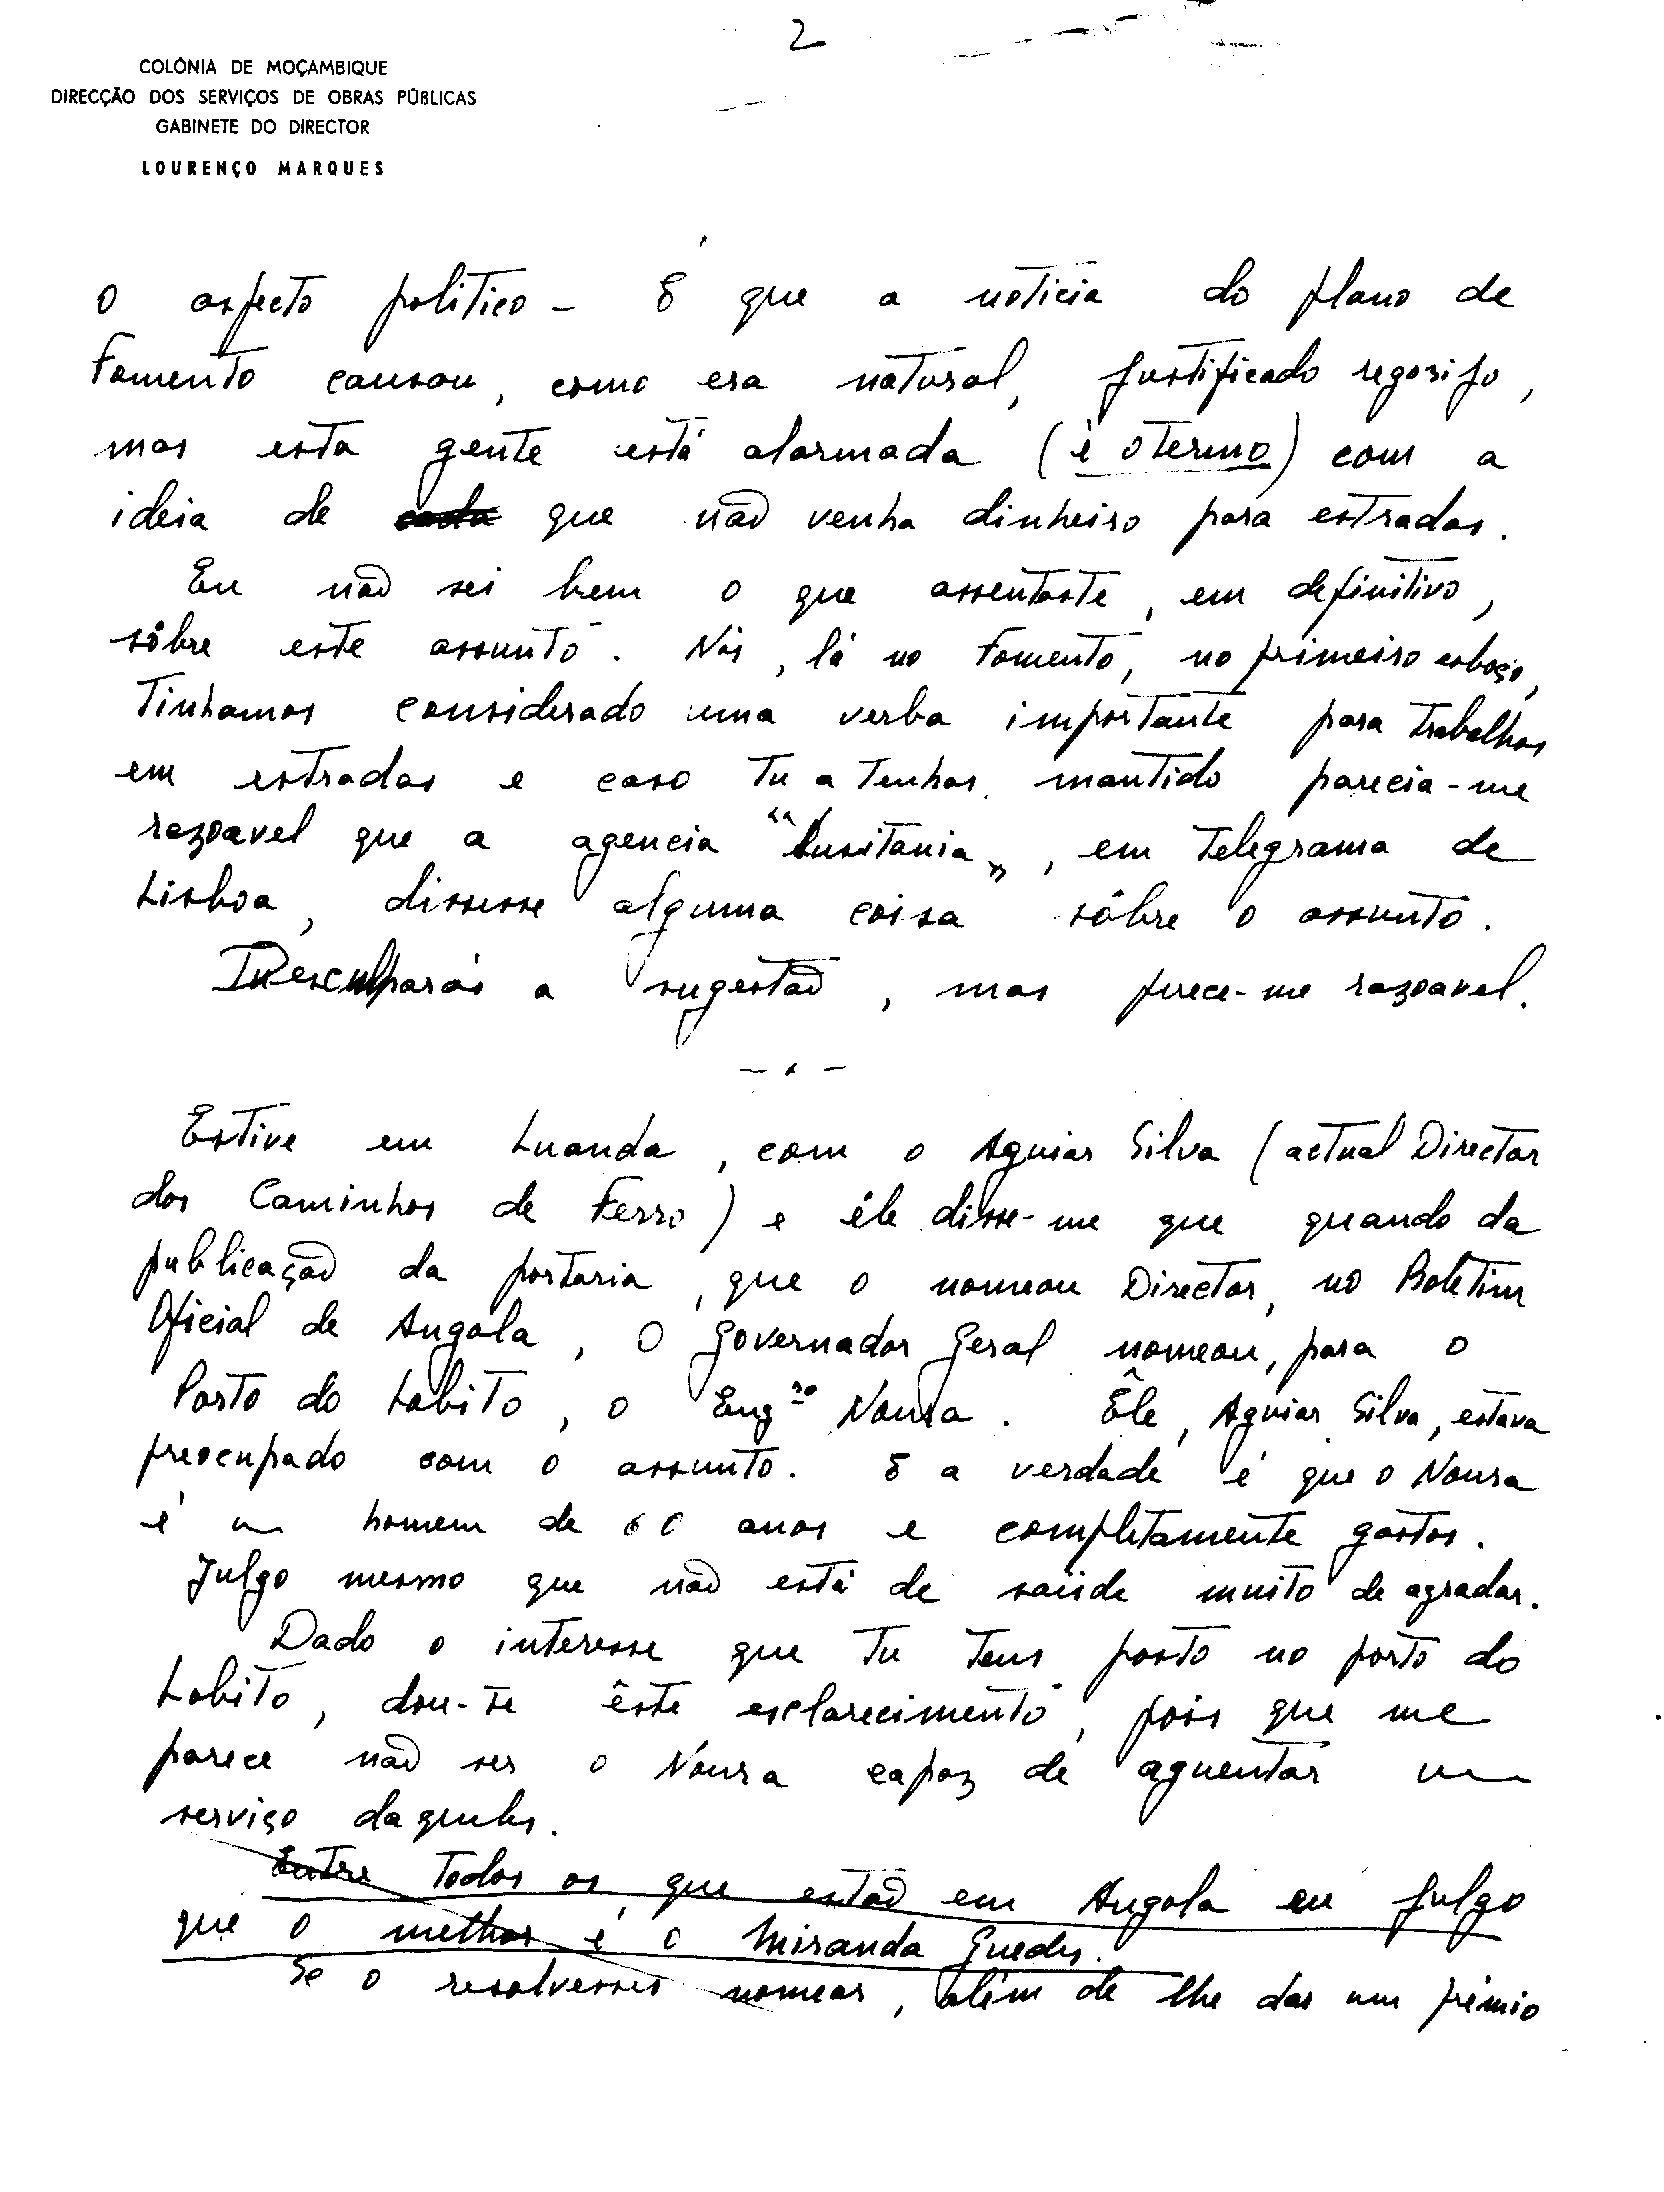 2
COLÓNIA DE MOÇAMBIQUE
DIRECÇÃO DOS SERVIÇOS DE OBRAS PÚBLICAS
GABINETE DO DIRECTOR
LOURENÇO MARQUES
O aspecto politico – É que a noticia do plano de
Fomento causou, como era natural, justificado regosijo,
mas esta gente está alarmada (é o termo) com a
ideia de que não venha dinheiro para estradas.
Eu não sei bem o que assentaste, em definitivo,
sôbre este assunto. Nós, lá no Fomento, no primeiro esboço,
Tinhamos considerado uma verba importante para trabalhos
em estradas e caso Tu a Tenhas mantido parecia-me
razoavel que a agencia "Lusitania", em Telegrama de
Lisboa, dissesse alguma coisa sôbre o assunto.
Desculparás a sugestão, mas parece-me razoavel.
– . –
Estive em Luanda, com o Aguiar Silva (actual Director
dos Caminhos de Ferro) e êle disse-me que quando da
publicação da portaria, que o nomeou Director, no Boletim
Oficial de Angola, O Governador Geral nomeou, para o
Porto do Lobito, o Engro Noura. Êle, Aguiar Silva, estava
preocupado com o assunto. E a verdade é que o Noura
é um homem de 60 anos e completamente gastos.
Julgo mesmo que não está de saúde muito de agradar.
Dado o interesse que Tu Tens posto no porto do
Lobito, dou-te êste esclarecimento, pois que me
parece não ser o Noura capaz de aguentar um
serviço daqueles.
Entre Todos os que estão em Angola eu julgo
que o melhor é o Miranda Guedes.
Se o resolvesses nomear, além de lhe dar um prémio